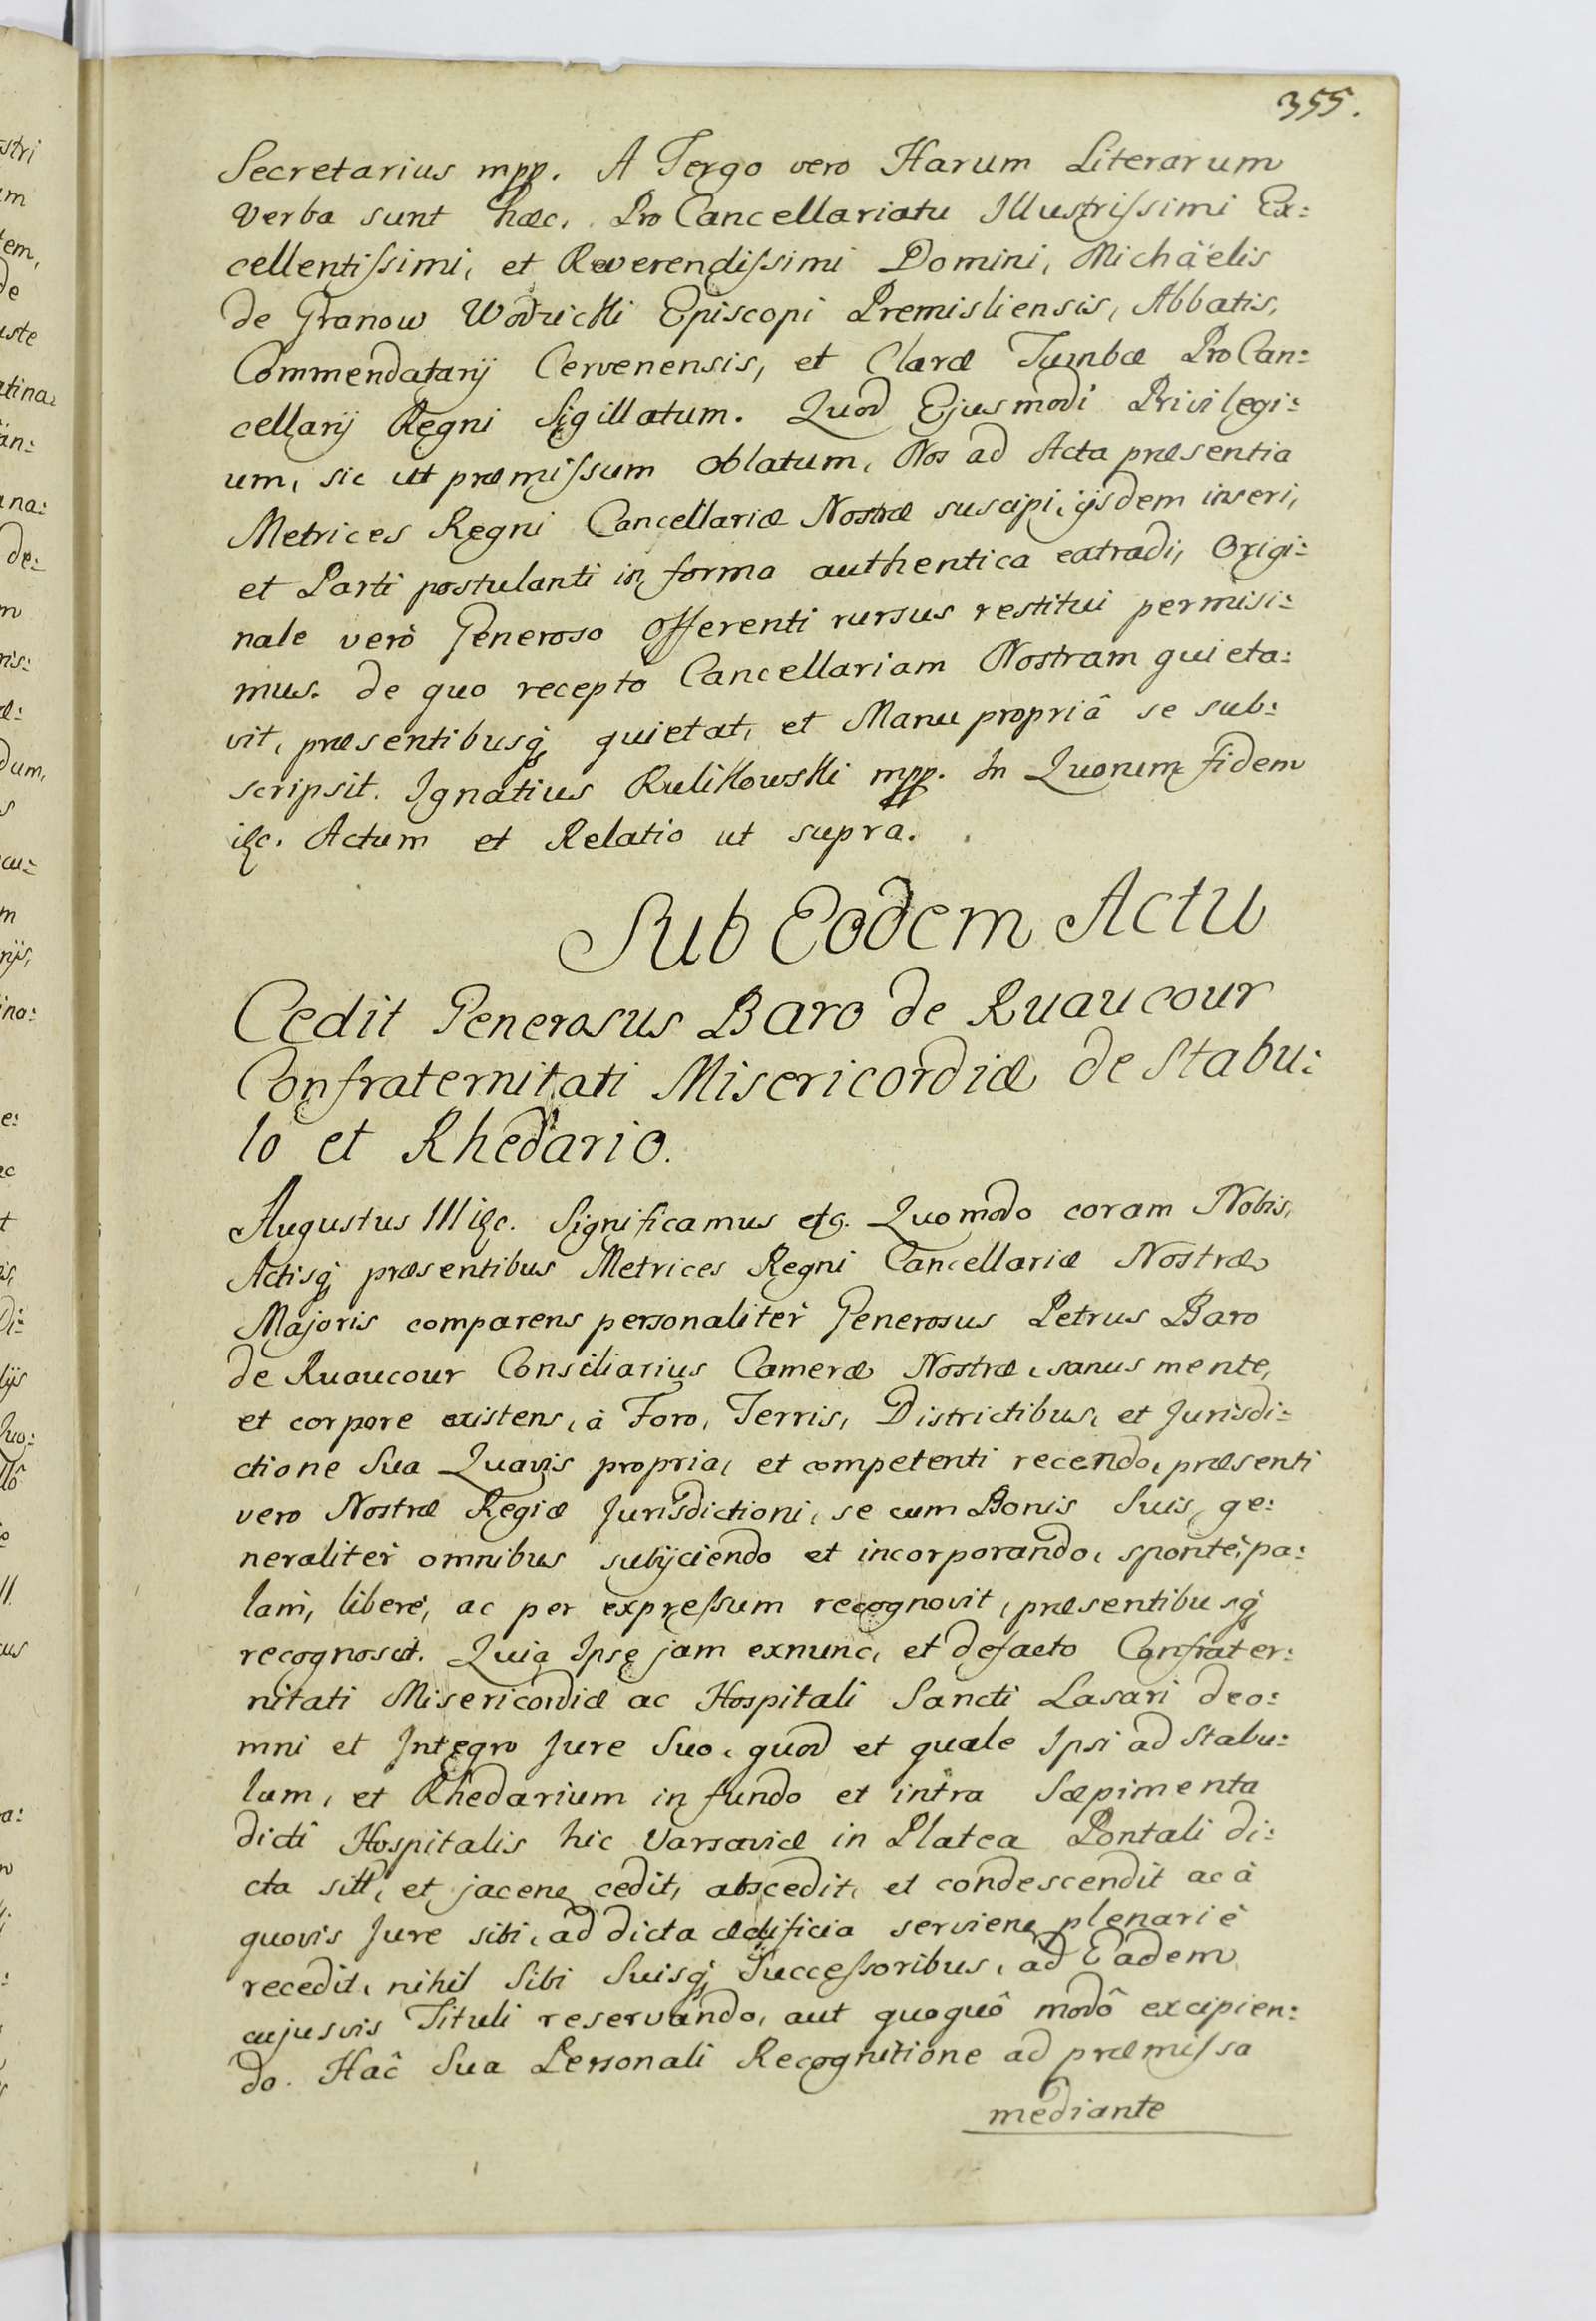 355.
Secretarius mpp. A Tergo vero Harum Literarum
verba sunt hæc. Pro Cancellariatu Illustrissimi Ex:
cellentissimi, et Reverendissimi Domini, Michäelis
de Granow Wodzicki Episcopi Premisliensis, Abbatis,
Commendatarij Cervenensis, et Claræ Tumbæ ProCan:
cellarij Regni Sigillatum. Quod Ejusmodi Privilegi:
um, sic ut præmissum oblatum, Nos ad Acta præsentia
Metrices Regni Cancellariæ Nostræ suscipi, ijsdem inseri,
et Parti postulanti in forma authentica extradi, Origi:
nale verò Generoso Offerenti rursus restitui permisi:
mus. de quo recepto Cancellariam Nostram quieta:
vit, præsentibusq̃ quietat, et Manu propriâ se sub:
scripsit. Ignatius Rulikowski mpp. In Quorum fidem
&c. Actum et Relatio ut supra.
Sub Eodem Actu
Cedit Generosus Baro de Ruaucour
Confraternitati Misericordiæ de Stabu:
lo et Rhedario.
Augustus III &c. Significamus etc. Quomodo coram Nobis,
Actisq̃ præsentibus Metrices Regni Cancellariæ Nostræ
Majoris comparens personalitèr Generosus Petrus Baro
de Ruaucour Consiliarius Cameræ Nostræ, sanus mente,
et corpore existens, à Foro, Terris, Districtibus, et Jurisdi:
ctione Sua Quavis propria, et competenti recendo, præsenti
vero Nostræ Regiæ Jurisdictioni, se cum Bonis Suis, ge:
neralitèr omnibus subijciendo et incorporando, spontè, pa:
lam, liberè, ac per expressum recognovit, præsentibusq̃
recognoscit. Quia Ipse jam exnunc, et defacto Confrater:
nitati Misericordiæ ac Hospitali Sancti Lasari deo:
mni et Integro Jure Suo, quod et quale Ipsi ad Stabu:
lum, et Rhedarium in fundo et intra Sæpimenta
dicti Hospitalis hic Varsaviæ in Platea Pontali di:
cta sitt, et jacenę cedit, abscedit, et condescendit ac à
quovis Jure sibi, ad dicta ædificia servienę plenariè
recedit, nihil Sibi Suisq̃ Successoribus, ad Eadem
cujusvis Tituli reservando, aut quoquô modô excipien:
do. Hac̑ Sua Personali Recognitione ad præmissa
mediante